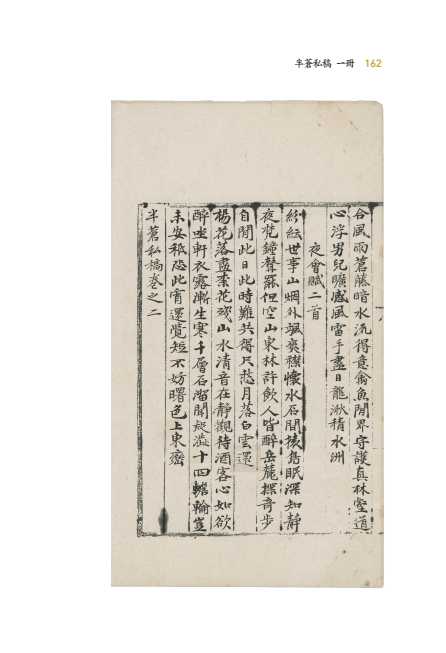 半蒼私稿 一冊 162
合風雨蒼藤暗水流得意禽魚閒界守護真林壑道
心浮男兒曠感風雷手盡日龍湫積水洲
夜會賦二首
紛紜世事山烟外颯爽襟懷水石間接鳥眠深知静
夜梵鐘聲羅但空山東林計飲人皆醉岳麓探奇步
自閒此日此時難共得只愁月落白雲還
楊花落盡柰花殘山水清音在静觀待酒客心如欲
醉坐軒衣露漸生寒千層石溜聞旋溢十四蟾輪豈
未安祇恐此宵還覺短不妨曙色上東巒
半蒼私稿卷之二